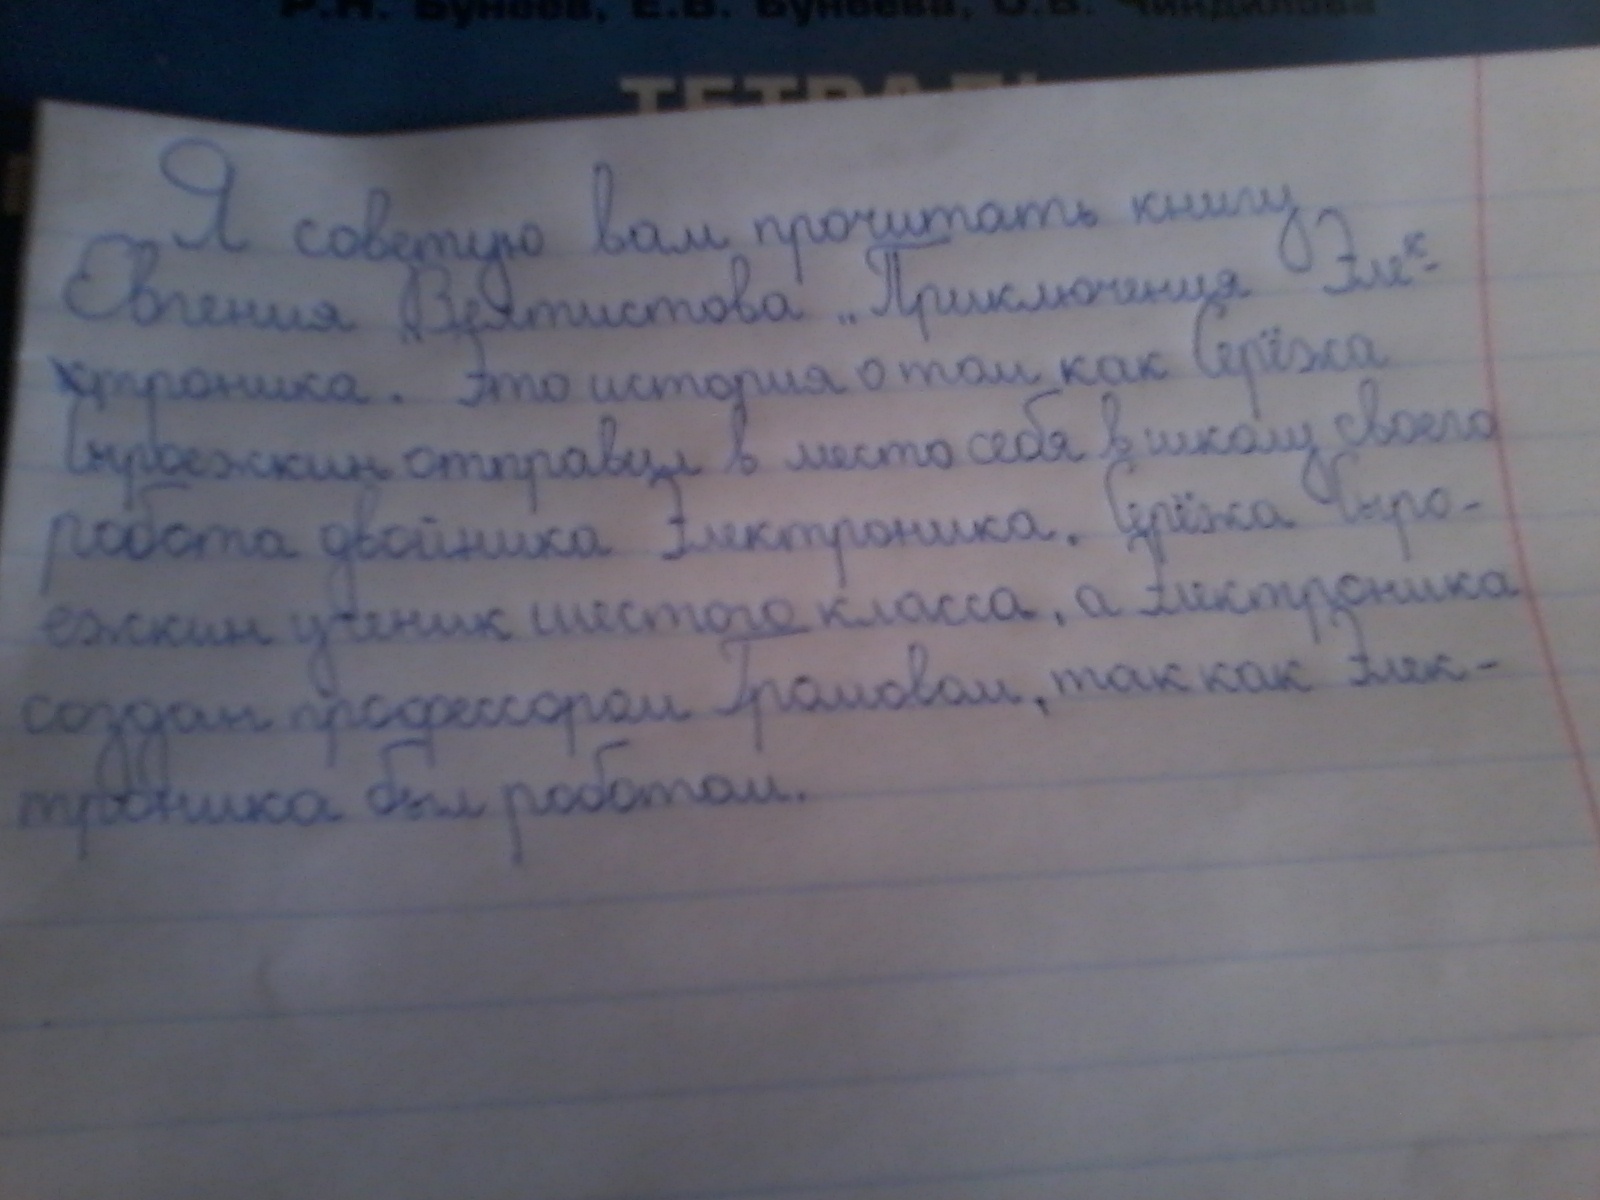 Р.Н. Бунеев, Е.В. Бунеева, О.В. Чиндилова
ТЕТРАДЬ
Я советую вам прочитать книгу
Евгения Велтистова „Приключения Элек-
ктроника. Это история о том как Серёжа
Сыроежкин отправил в место себя в школу своего
робота двойника Электроника. Серёжа Сыро-
ежкин ученик шестого класса, а Электроника
создан профессором Громовом, так как Элек-
троника был роботом.